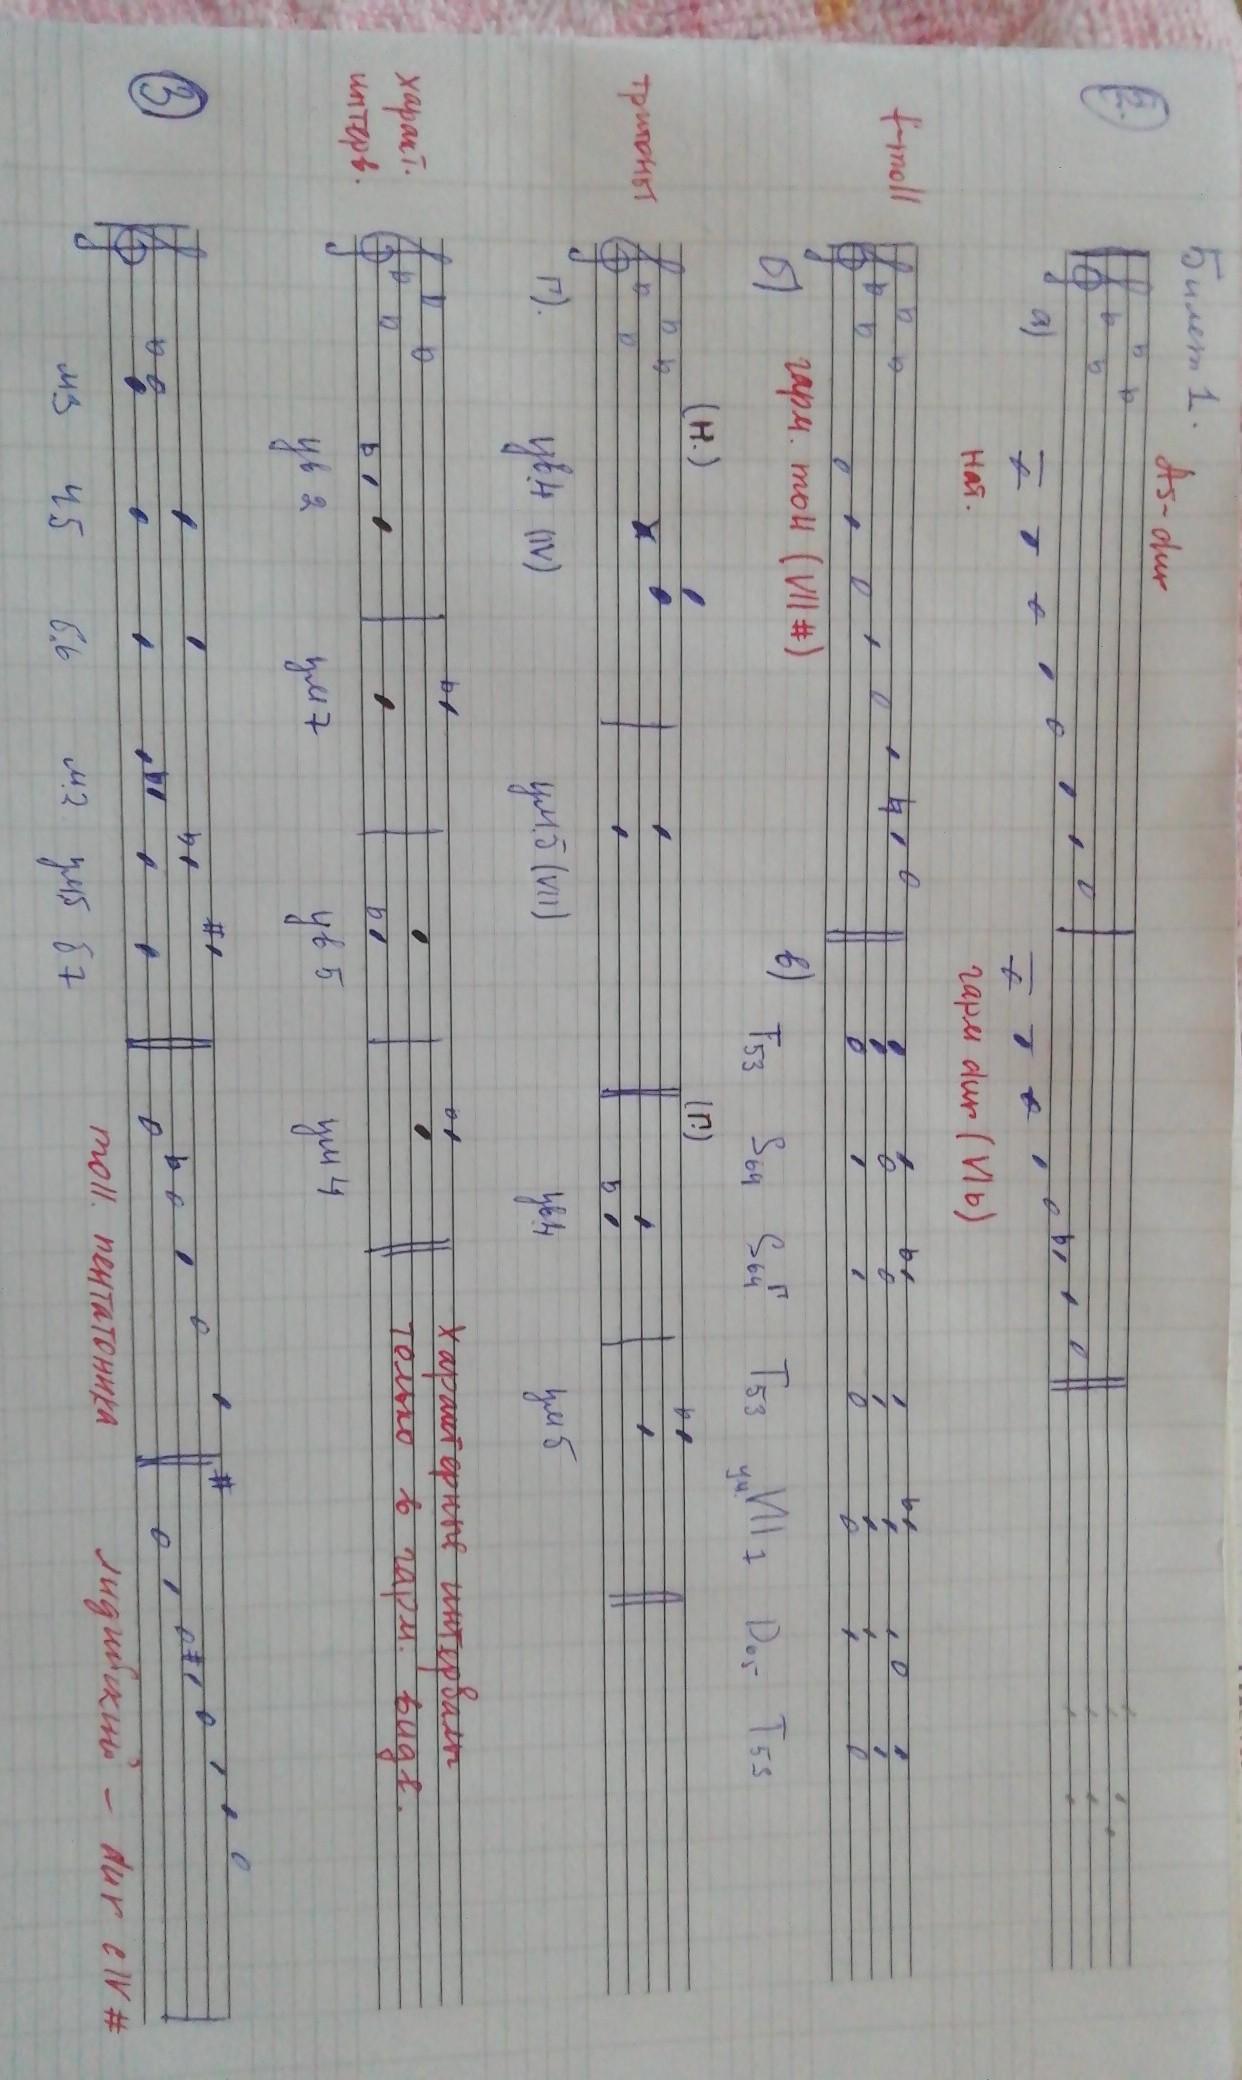 Билет 1. As-dur
2.
а) нат. гарм dur (VI b)
f-moll
б) гарм. moll (VII #) в) T53 S64 S64г T53 ум. VII7 D65 T53
(н.) (г.)
тритоны
г). ув.4 (IV) ум.5 (VII) ув.4 ум5
характ.
интерв.
Характерные интервалы
только в гарм. виде.
ув 2 ум 7 ув 5 ум 4
3
м3 ч5 б.6 м.2 ум5 б7 moll. пентатоника лидийский - dur с IV #